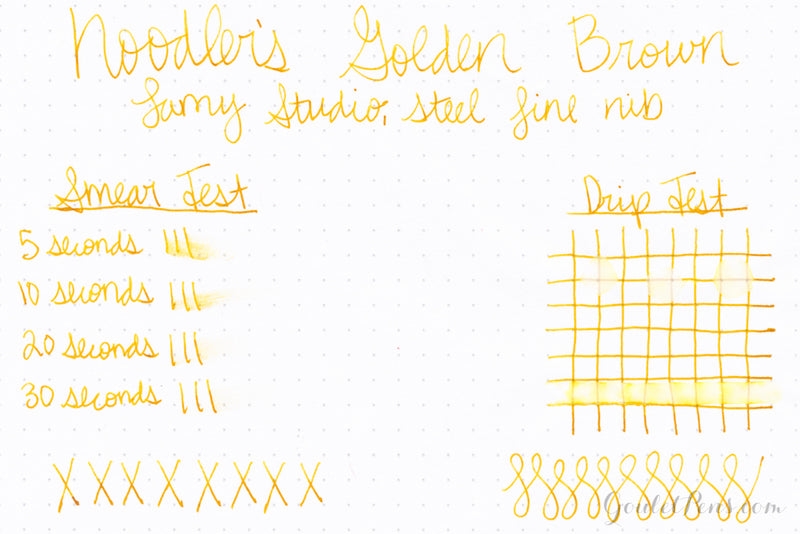 Noodler's Golden Brown
Lamy Studio, steel fine nib
Smear Test
Drip Test
5 seconds
10 seconds
20 seconds
30 seconds
X X X X X X X X
GouletPens.com